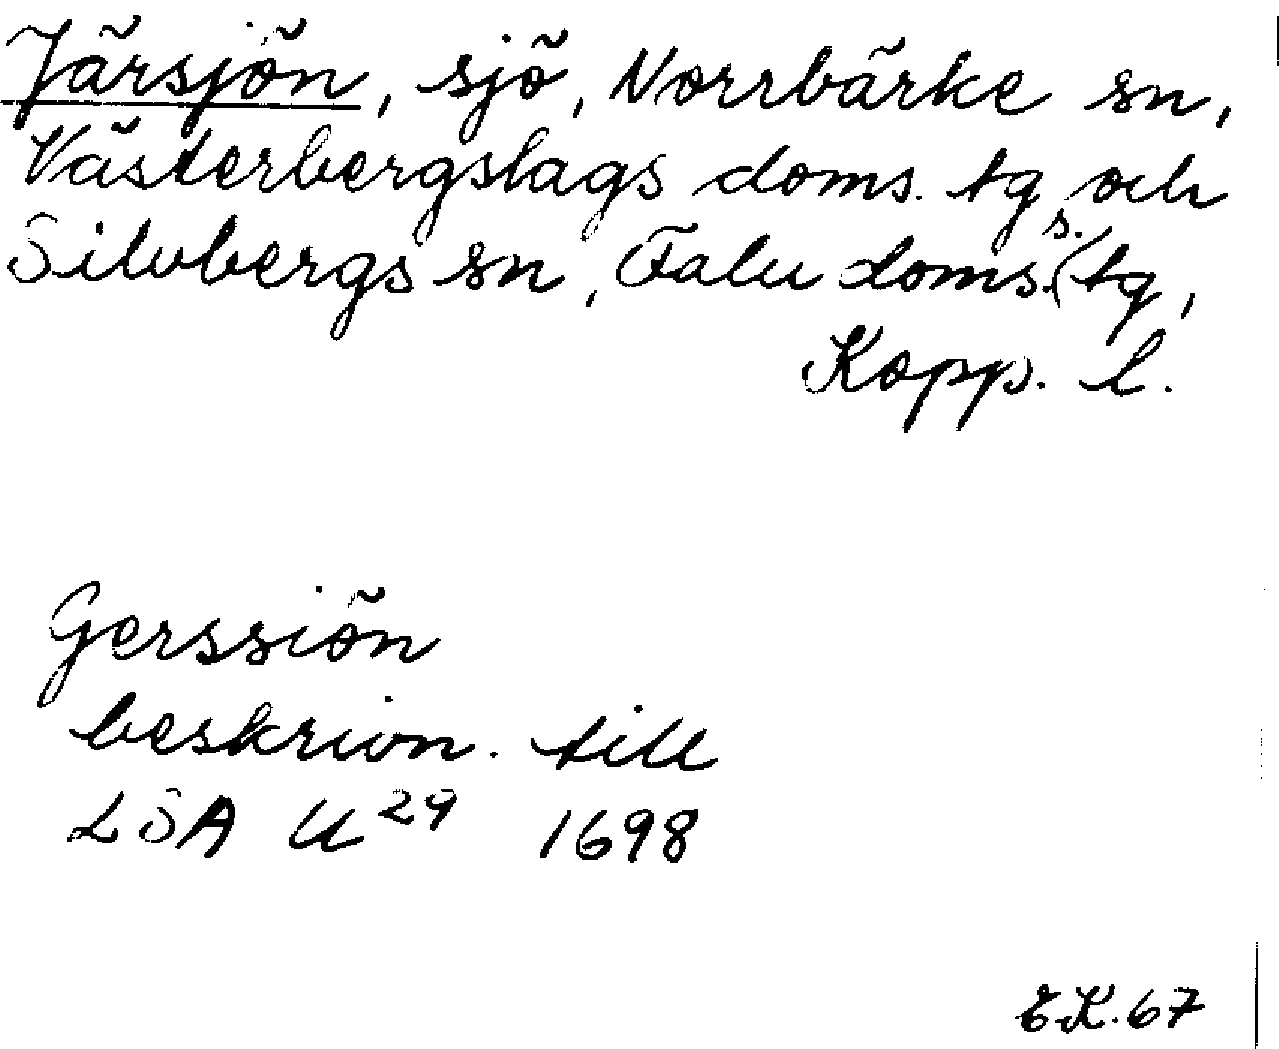 Järsjön, sjö, Norrbärke sn,
Västerbergslags doms. tg och
Silvbergs sn, Falu doms. s. tg,
Kopp. l.
Gerssiön
beskrivn. till
LSA U 29 1698
EK. 67